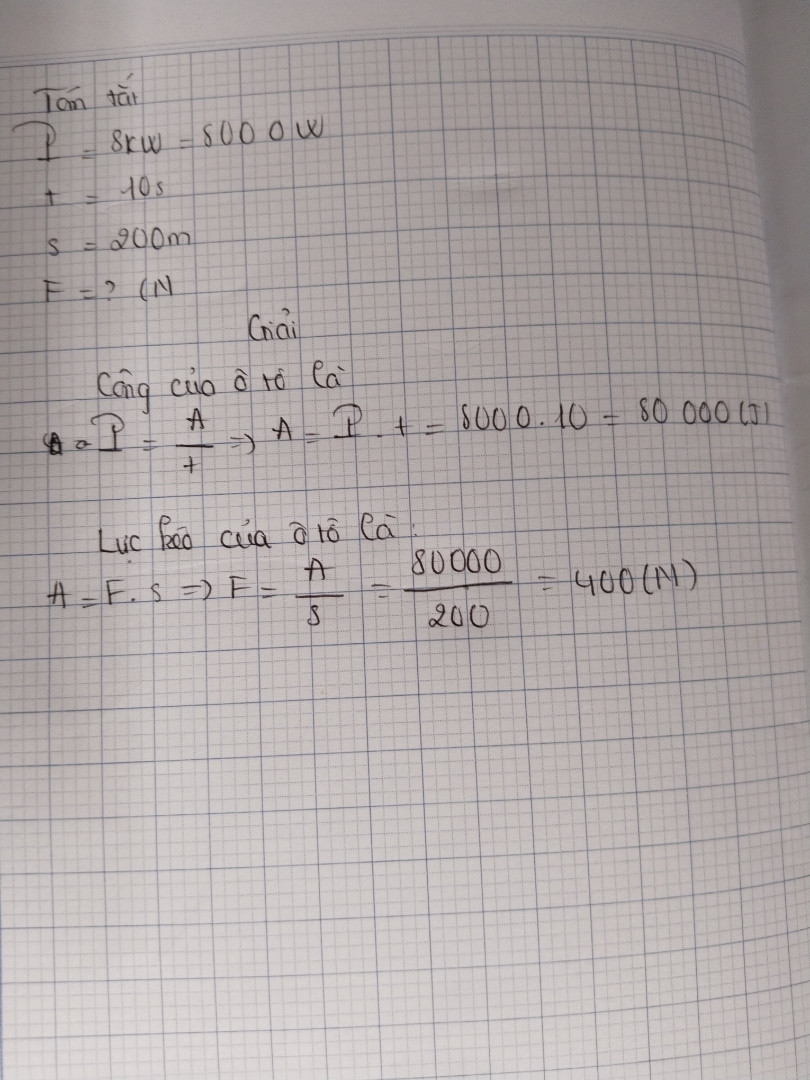 Tóm tắt
P = 8KW = 8000W
t = 10s
s = 200m
F = ? (N
Giải
Công của ô tô là
P = A/t => A = P . t = 8000.10 = 80 000 (J)
Lực kéo của ô tô là:
A = F. s => F = A/s = 80000/200 = 400 (N)